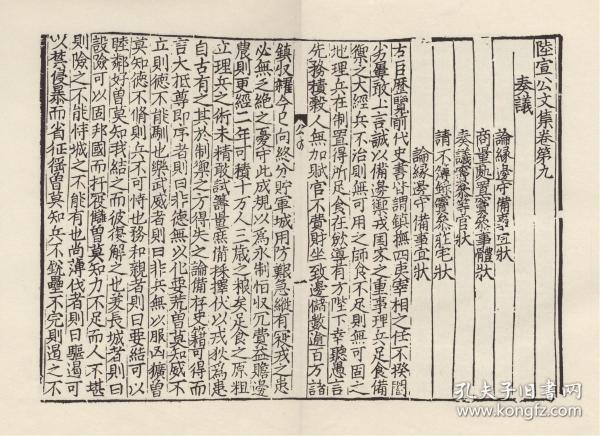 陸宣公文集卷第九
奏議
論緣邊守備事宜狀
商量處置竇參事體狀
奏議竇參等官狀
請不簿錄竇參莊宅狀
論緣邊守備事宜狀
右臣歷覽前代史書皆謂鎮撫四夷宰相之任不揆闇
劣屢敢上言誠以備邊禦戎國家之重事理兵足食備
禦之大經兵不治則無可用之師食不足則無可固之
地理兵在制置得所足食在斂導有方陛下幸聽愚言
先務積穀人無加賦官不費財坐致邊儲數逾百万諸
鎮収糴今已向終分貯軍城用防艱急縱有寇戎之患
必無乏絶之憂守此成規以為永制恒収冗費益贍邊
農則更經二年可積十万人三歲之粮矣足食之原粗
立理兵之術未精敢試籌量庶備採擇伏以戎狄為患
自古有之其於制禦之方得失之論備存史籍可得而
言大抵尊即序者則曰非德無以化要荒曽莫知威不
立則德不能馴也樂武威者則曰非兵無以服凶獷曽
莫知德不脩則兵不可恃也務和親者則曰要結可以
睦鄰好曽莫知我結之而彼復解之也美長城者則曰
設險可以固邦國而扞寇讎曽莫知力不足而人不堪
則險之不能恃城之不能有也尚薄伐者則曰驅遏可
以禁侵暴而省征徭曽莫知兵不銳壘不完則遏之不
孔夫子旧书网
www.kongfz.com